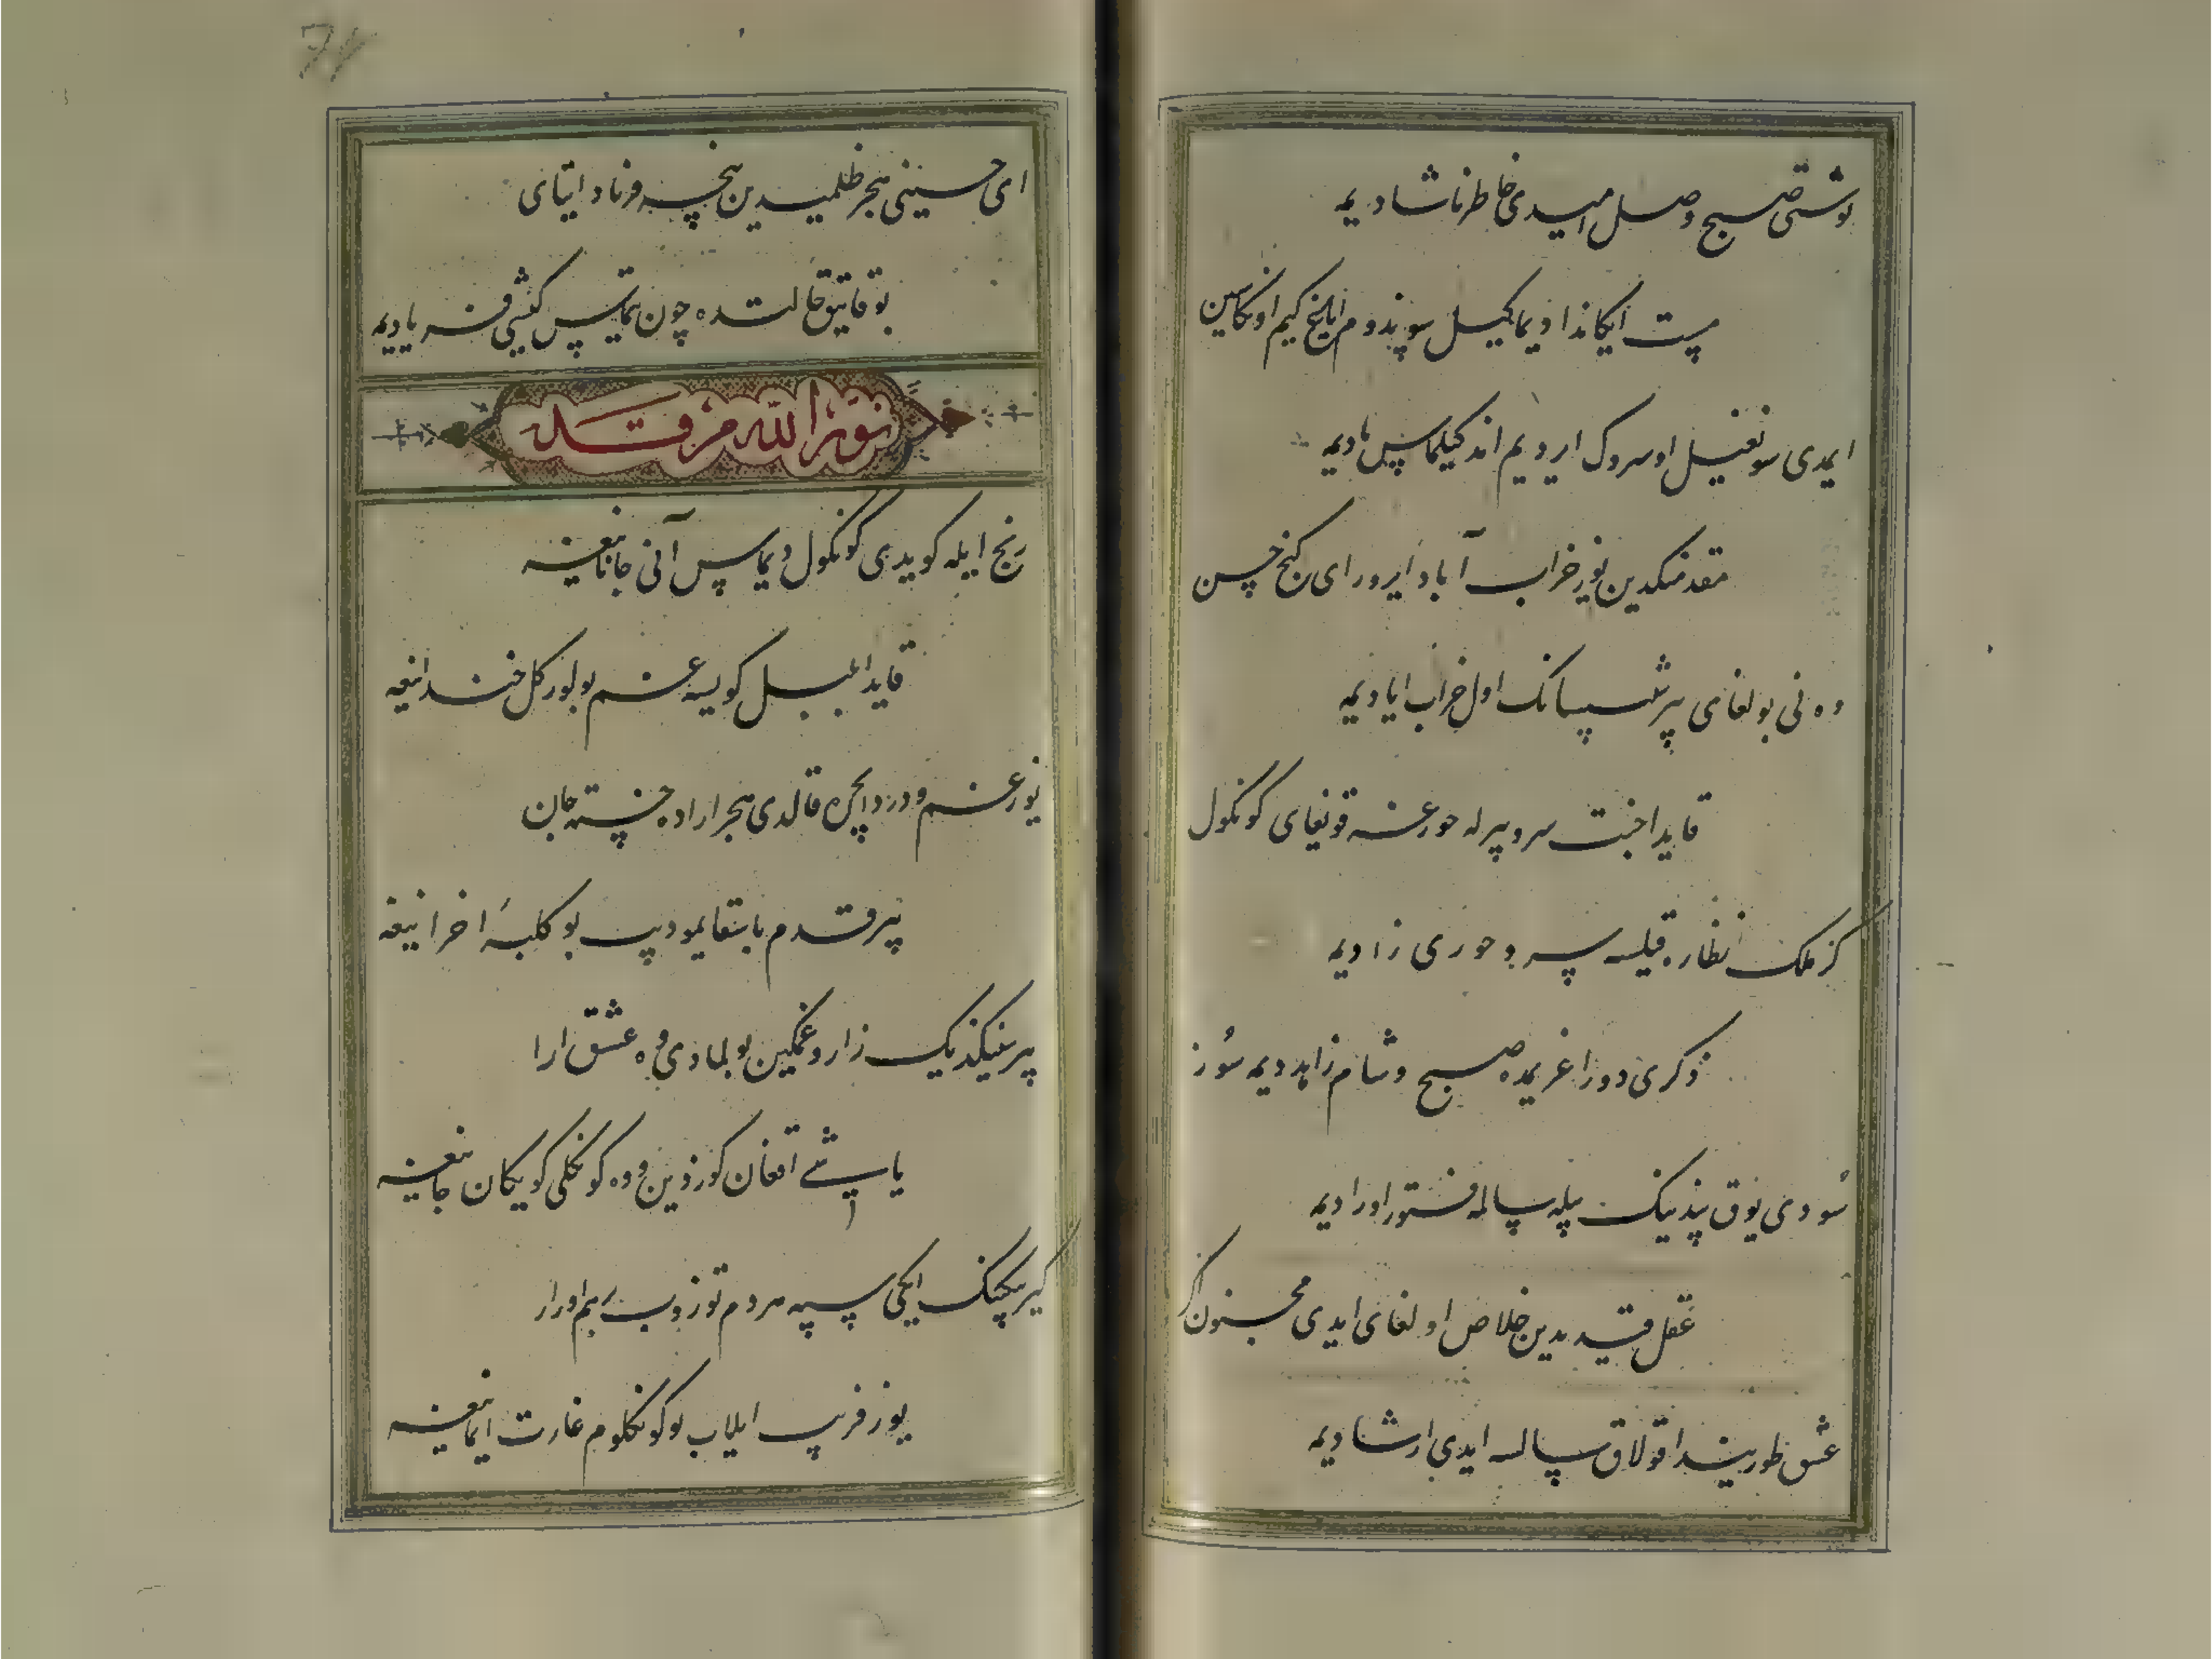 توشتی صبح وصل امیدی خاطر ناشادیمه
مست ایکاندا دیما کیل سوندوم ایاغ کیم اونکاسین
ایمدی سونغیل اوسروک ایردیم اند کیلماس یادیمه
مقدمنکدین یوز خراب آباد ایرور ای کنج حسن
وه نی بولغای بیر شب سانک اول خراب ابادیمه
قایدا جنت سرو بیرله حورغه قونغای کونکول
کر ملک نظاره قیلسه سرو حوری زادیمه
ذکری دور اغزیمده صبح و شام زاهد دیمه سوز
سودی یوق پندینک بیله سالمه فتور اورادیمه
عقل قیدیدین خلاص اولغای ایدی مجنون اکر
عشق طوریندا قولاق سالسه ایدی ارشادیمه
71
ای حسینی هجر ظلمیدین نیچه فریاد ایتای
بو قاتیق حالتده چون یتماس کیشی فریادیمه
نور الله مرقده
رنج ایله کویدی کونکول دیماس آنی جانانیغه
قایدا بلبل کویسه غم بولور کل خندانیغه
یوز غم و درد ایچره قالدی هجر ارا ده خسته جان
بیر قدم باسقایمو دیب بو کلبهٔ احزانیغه
بیر مینکدیک زار و غمکین بولمادی وه عشق ارا
یاشی اقغان کوزدین و وه کونکلی کویکان جانیغه
کیرپیکنک ایکی سیه مردم توزوب رهم اورار
یوز فریب ایلاب بو کونکلوم غارت ایمانیغه